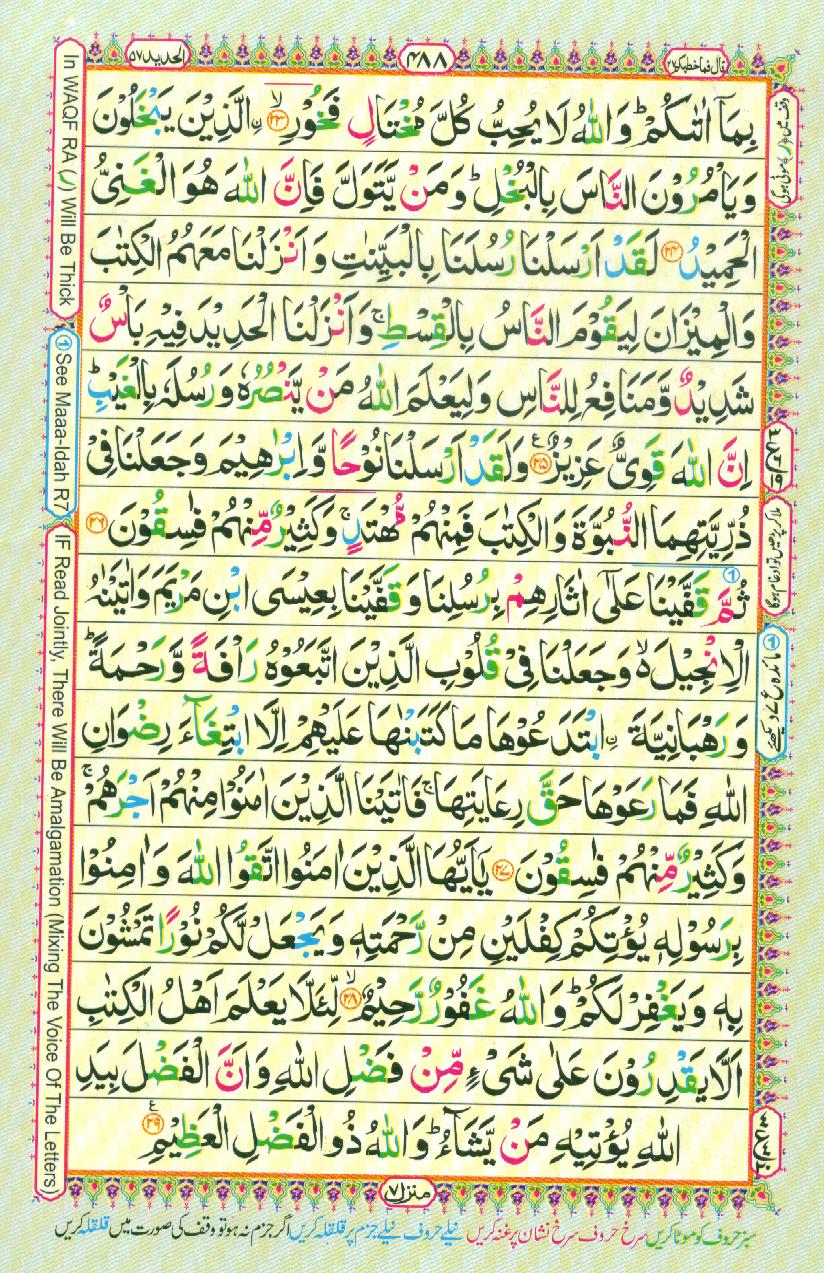 قال فما خطبکم ۲۷
۴۸۸
الحدید ۵۷
بِمَاۤ اٰتٰىكُمْ ؕ وَاللّٰهُ لَا يُحِبُّ كُلَّ مُخْتَالٍ فَخُوْرِ ۙ﴿۲۳﴾ ۨالَّذِيْنَ يَبْخَلُوْنَ
وَيَاْمُرُوْنَ النَّاسَ بِالْبُخْلِ ؕ وَمَنْ يَّتَوَلَّ فَاِنَّ اللّٰهَ هُوَ الْغَنِىُّ
الْحَمِيْدُ ﴿۲۴﴾ لَقَدْ اَرْسَلْنَا رُسُلَنَا بِالْبَيِّنٰتِ وَاَنْزَلْنَا مَعَهُمُ الْكِتٰبَ
وَالْمِيْزَانَ لِيَقُوْمَ النَّاسُ بِالْقِسْطِ ۚ وَاَنْزَلْنَا الْحَدِيْدَ فِيْهِ بَاْسٌ
شَدِيْدٌ وَّمَنَافِعُ لِلنَّاسِ وَلِيَعْلَمَ اللّٰهُ مَنْ يَّنْصُرُهٗ وَرُسُلَهٗ بِالْغَيْبِ ؕ
اِنَّ اللّٰهَ قَوِىٌّ عَزِيْزٌ ﴿۲۵﴾ وَلَقَدْ اَرْسَلْنَا نُوْحًا وَّاِبْرٰهِيْمَ وَجَعَلْنَا فِىْ
ذُرِّيَّتِهِمَا النُّبُوَّةَ وَالْكِتٰبَ فَمِنْهُمْ مُّهْتَدٍ ۚ وَكَثِيْرٌ مِّنْهُمْ فٰسِقُوْنَ ﴿۲۶﴾
ثُمَّ قَفَّيْنَا عَلٰٓى اٰثَارِهِمْ بِرُسُلِنَا وَقَفَّيْنَا بِعِيْسَى ابْنِ مَرْيَمَ وَاٰتَيْنٰهُ
الْاِنْجِيْلَ ۙ وَجَعَلْنَا فِىْ قُلُوْبِ الَّذِيْنَ اتَّبَعُوْهُ رَاْفَةً وَّرَحْمَةً ؕ
وَرَهْبَانِيَّةَ ۨابْتَدَعُوْهَا مَا كَتَبْنٰهَا عَلَيْهِمْ اِلَّا ابْتِغَآءَ رِضْوَانِ
اللّٰهِ فَمَا رَعَوْهَا حَقَّ رِعَايَتِهَا ۚ فَاٰتَيْنَا الَّذِيْنَ اٰمَنُوْا مِنْهُمْ اَجْرَهُمْ ۚ
وَكَثِيْرٌ مِّنْهُمْ فٰسِقُوْنَ ﴿۲۷﴾ يٰۤاَيُّهَا الَّذِيْنَ اٰمَنُوا اتَّقُوا اللّٰهَ وَاٰمِنُوْا
بِرَسُوْلِهٖ يُؤْتِكُمْ كِفْلَيْنِ مِنْ رَّحْمَتِهٖ وَيَجْعَلْ لَّكُمْ نُوْرًا تَمْشُوْنَ
بِهٖ وَيَغْفِرْ لَكُمْ ؕ وَاللّٰهُ غَفُوْرٌ رَّحِيْمٌ ۙ﴿۲۸﴾ لِّئَلَّا يَعْلَمَ اَهْلُ الْكِتٰبِ
اَلَّا يَقْدِرُوْنَ عَلٰى شَىْءٍ مِّنْ فَضْلِ اللّٰهِ وَاَنَّ الْفَضْلَ بِيَدِ
اللّٰهِ يُؤْتِيْهِ مَنْ يَّشَآءُ ؕ وَاللّٰهُ ذُو الْفَضْلِ الْعَظِيْمِ ﴿۲۹﴾
منزل ۷
سبز حروف کو موٹا کریں سرخ حروف سرخ نشان پر غنہ کریں نیلے حروف نیلے جزم پر قلقلہ کریں اگر جزم نہ ہو تو وقف کی صورت میں قلقلہ کریں
In WAQF RA (ر) Will Be Thick
① See Maaa-Idah R7
IF Read Jointly, There Will Be Amalgamation (Mixing The Voice Of The Letters)